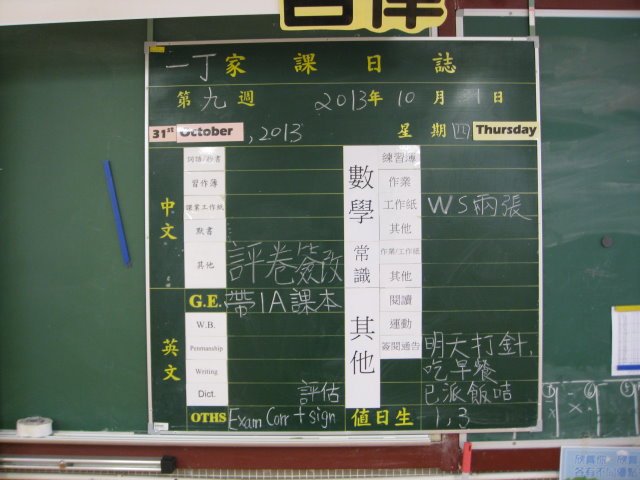 自律
一丁家課日誌
第九週 2013年10月31日
31st October, 2013 星期四 Thursday
中文
詞語/抄書
習作簿
課業工作紙
默書
其他 評卷簽改
G.E. 帶1A課本
英文
W.B.
Penmanship
Writing
Dict. 評估
OTHS Exam Corr + sign
數學
練習簿
作業
工作紙 WS兩張
其他
常識
作業/工作紙
其他
其他
閱讀
運動
簽閱通告 明天打針,
吃早餐
已派飯咭
值日生 1, 3